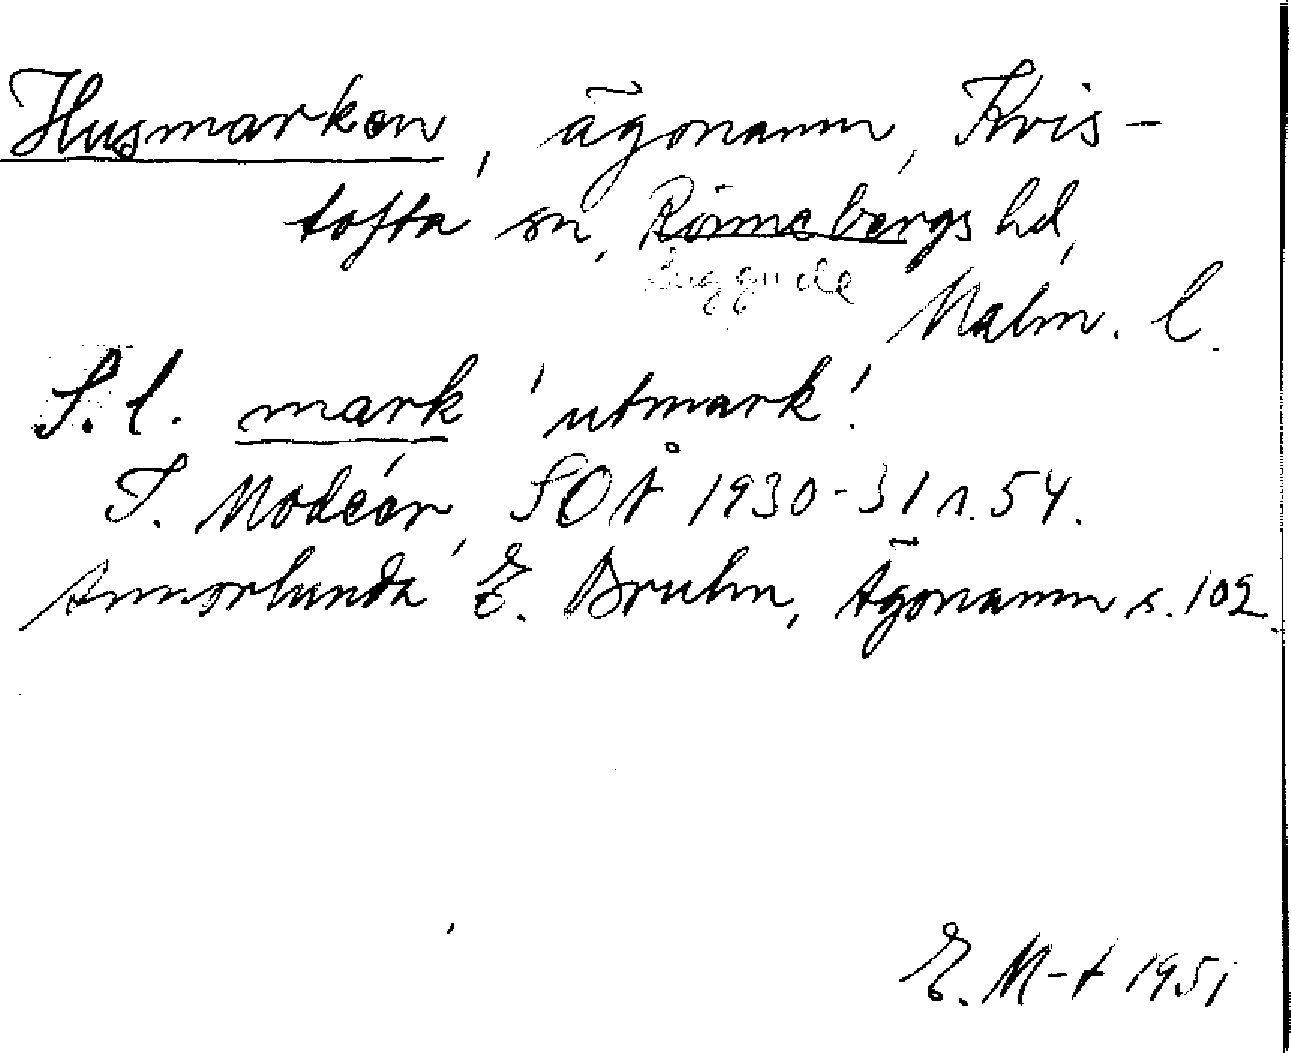 Husmarken, ägonamn, Kvis-
tofta sn, Rönnebergs hd,
Luggude
Malm. l.
S. l. mark 'utmark'.
I. Modéer, SOÅ 1930-31 s. 54.
Annorlunda E. Bruhn, Ägonamn s. 102.
E. M-t 1951